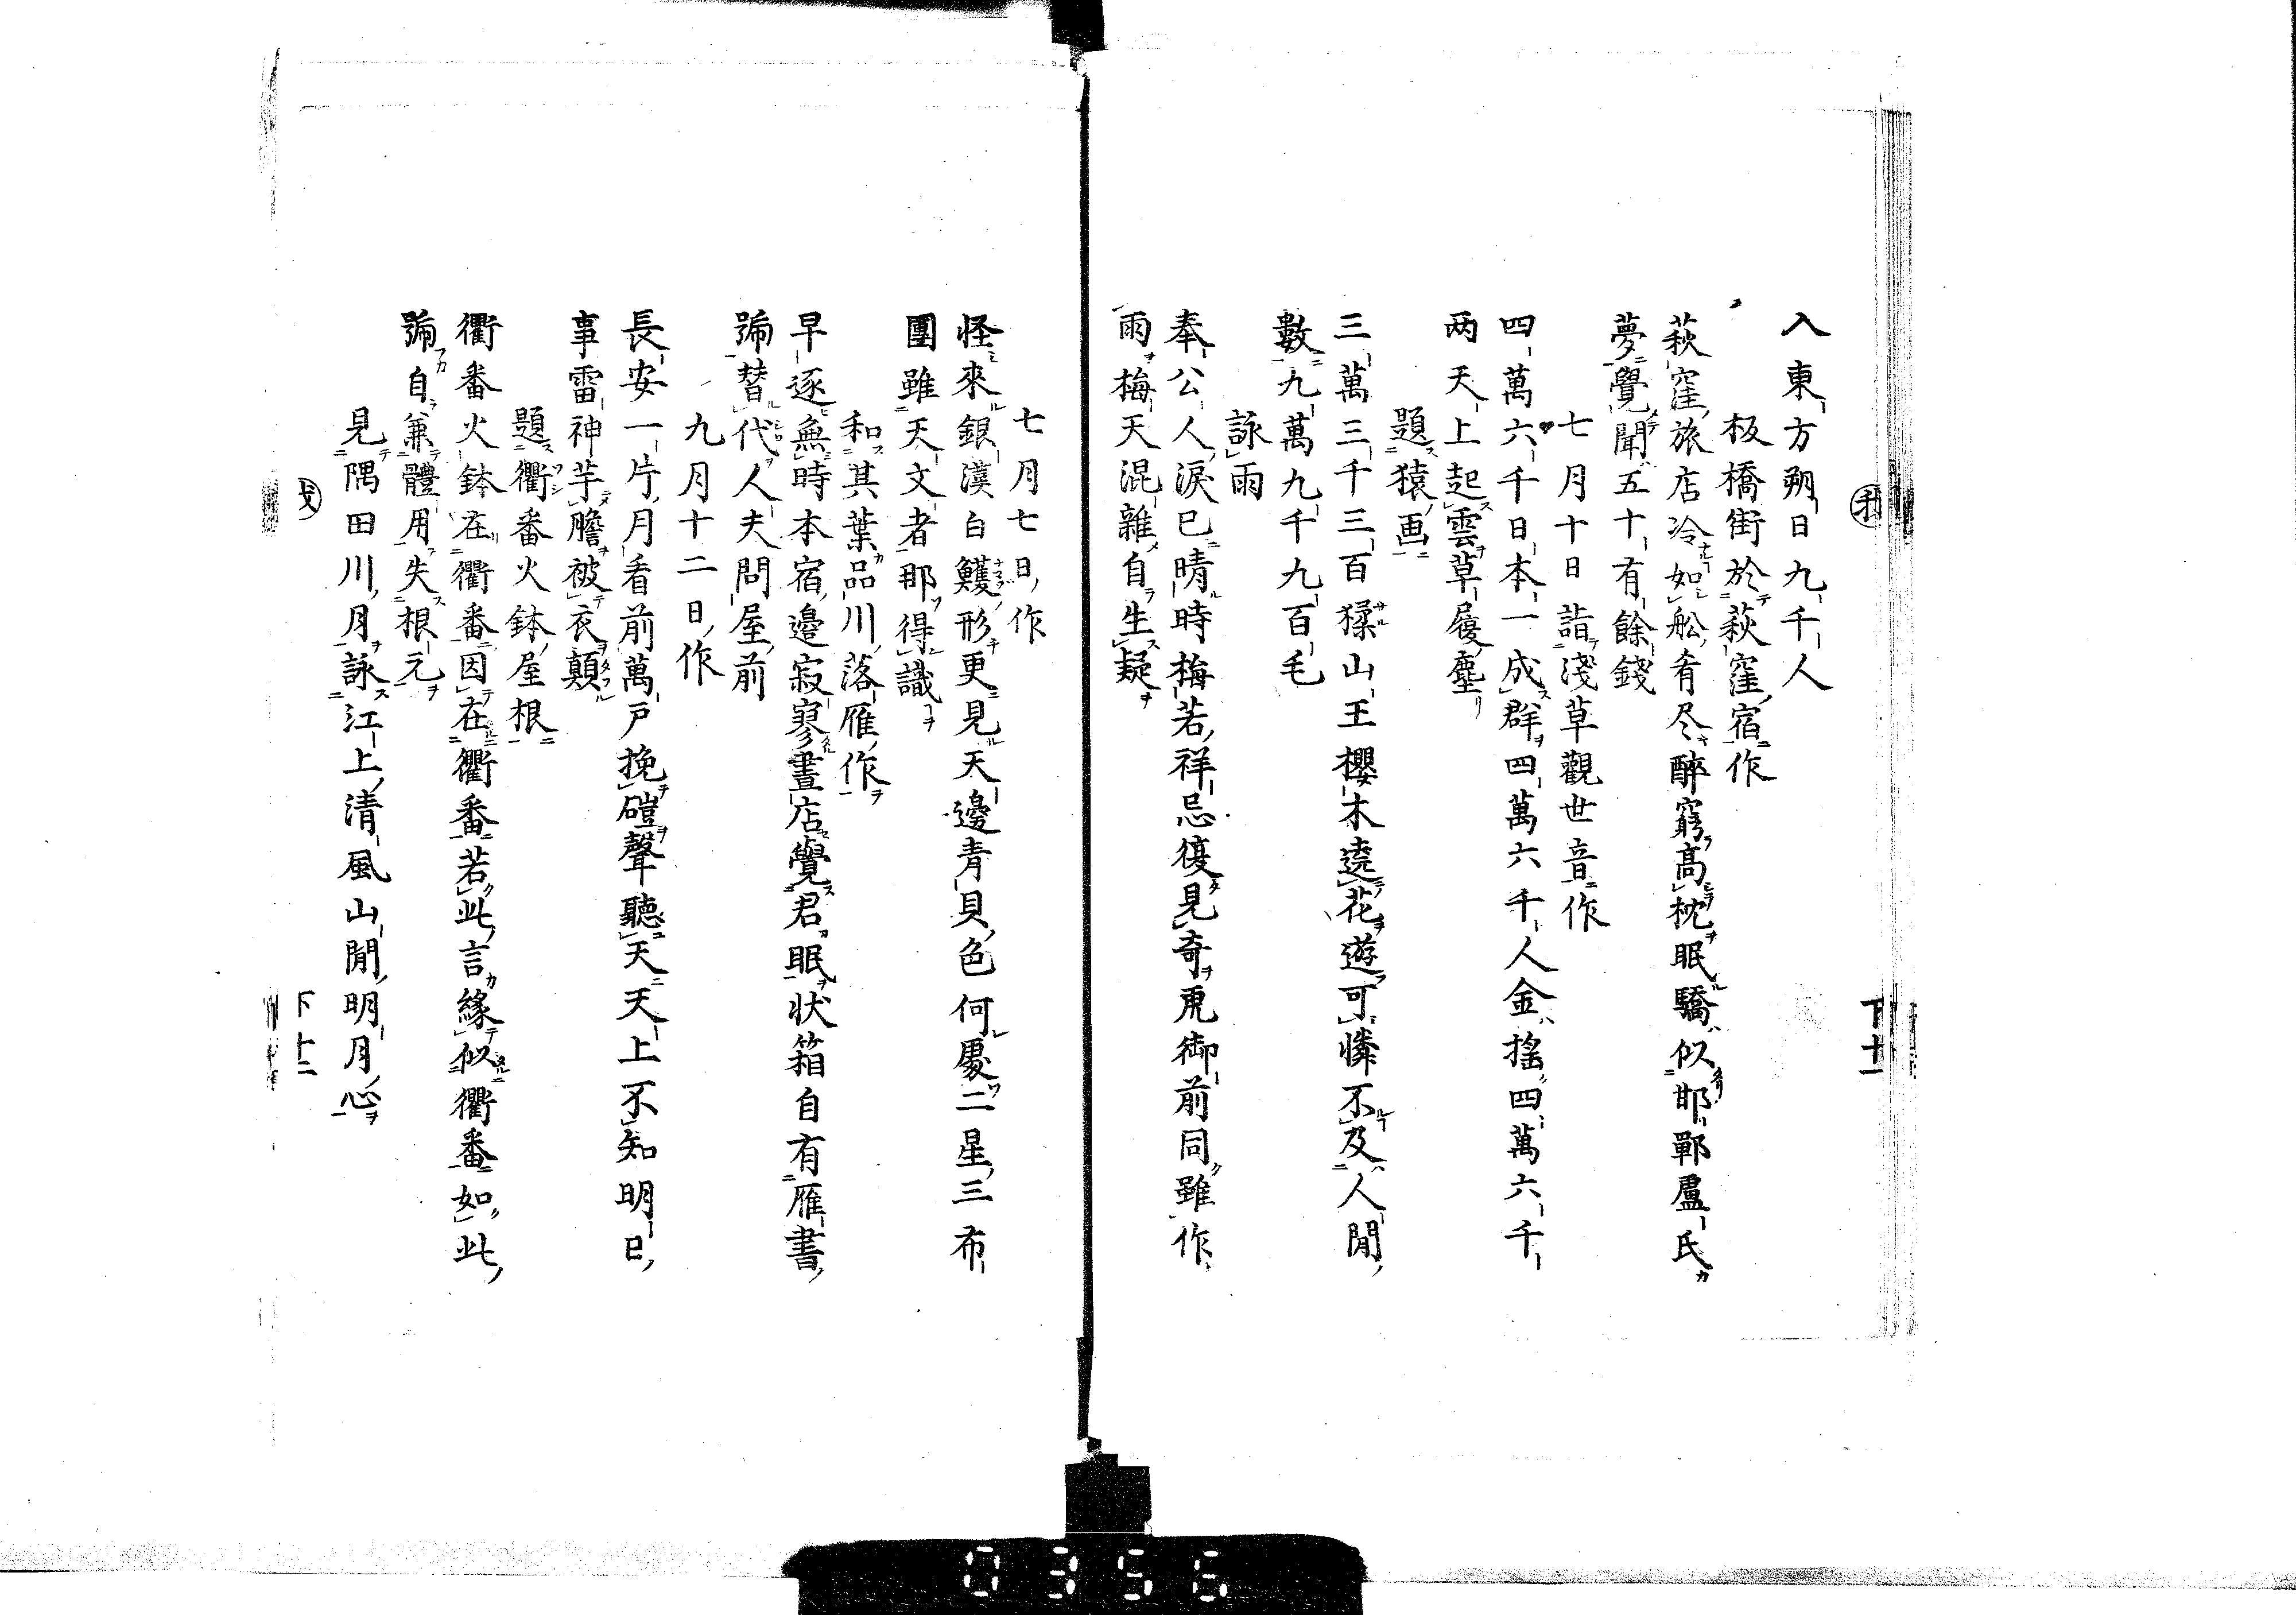 入東方朔日九千人
板橋街於萩窪宿作
萩窪旅店冷如舩肴尽醉窮高枕眠驕似邯鄲盧氏
夢覺聞五十有餘錢
七月十日詣淺草觀世音作
四萬六千日本一成群四萬六千人金搖四萬六千
両天上起雲草履塵
題猿画
三萬三千三百猱山王櫻木遶花遊可憐不及人閒
數九萬九千九百毛
詠雨
奉公人淚已晴時梅若祥忌復見奇虎御前同雖作
雨梅天混雜自生疑
下十一
七月七日作
怪來銀漢白鱯形更見天邊青貝色何處二星三布
團雖天文者那得識
和其葉品川落雁作
早逐無時本宿邉寂寥晝店覺君眠状箱自有雁書
號替代人夫問屋前
九月十二日作
長安一片月看前萬戸挽磑聲聽天天上不知明日
事雷神芋膽被衣顛
題衢番火鉢屋根
衢番火鉢在衢番因在衢番若此言緣似衢番如此
號自兼體用失根元
見隅田川月詠江上清風山閒明月心
下十二
0356